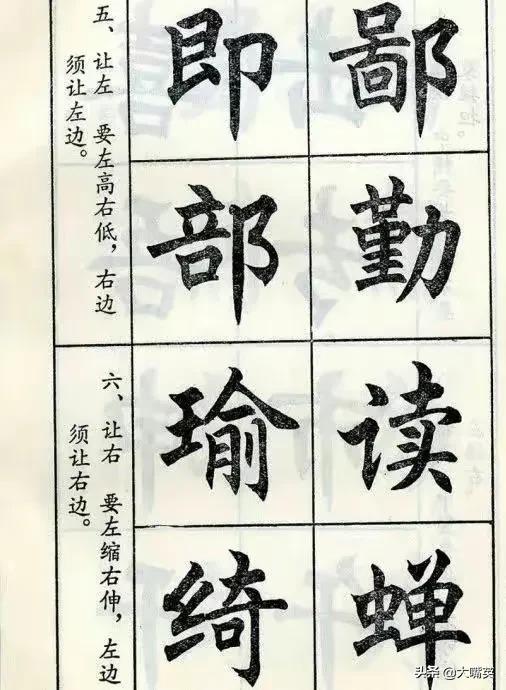 五、让左 要左高右低，右边
须让左边。
即 鄙
部 勤
六、让右 要左缩右伸，左边
须让右边。
瑜 读
绮 蝉
头条 @大嘴葵